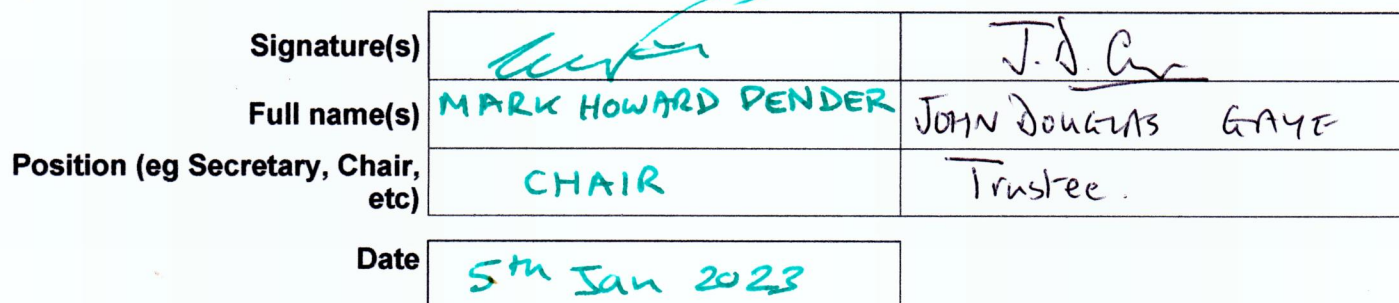 Signature(s) J.D. G
Full name(s) MARK HOWARD PENDER JOHN DOUGLAS GAYE
Position (eg Secretary, Chair, CHAIR Trustee.
etc)
Date 5th Jan 2023